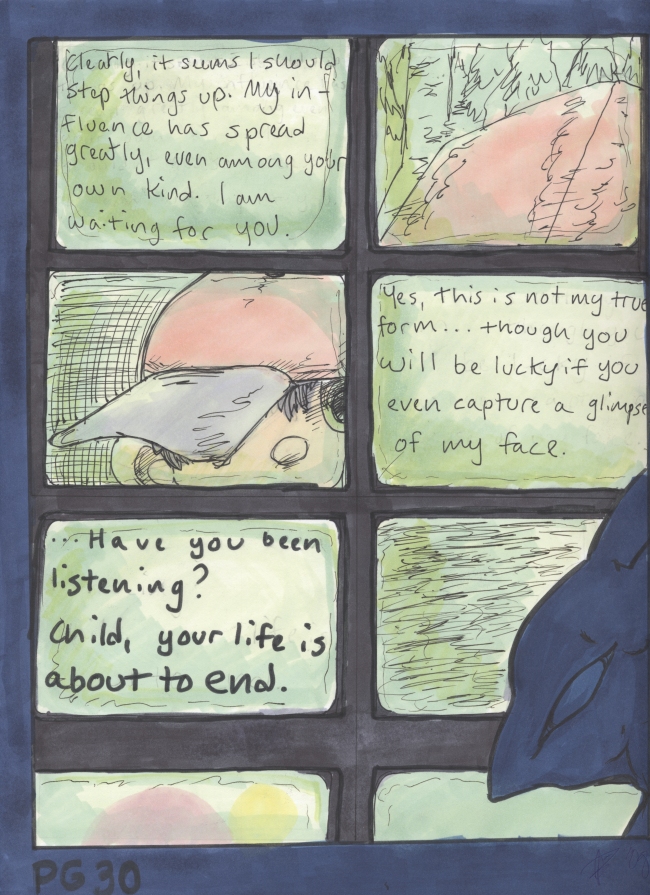 Clearly, it seems I should
step things up. My in-
fluence has spread
greatly, even among your
own kind. I am
waiting for you.
Yes, this is not my true
form... though you
will be lucky if you
even capture a glimpse
of my face.
...Have you been
listening?
Child, your life is
about to end.
PG 30